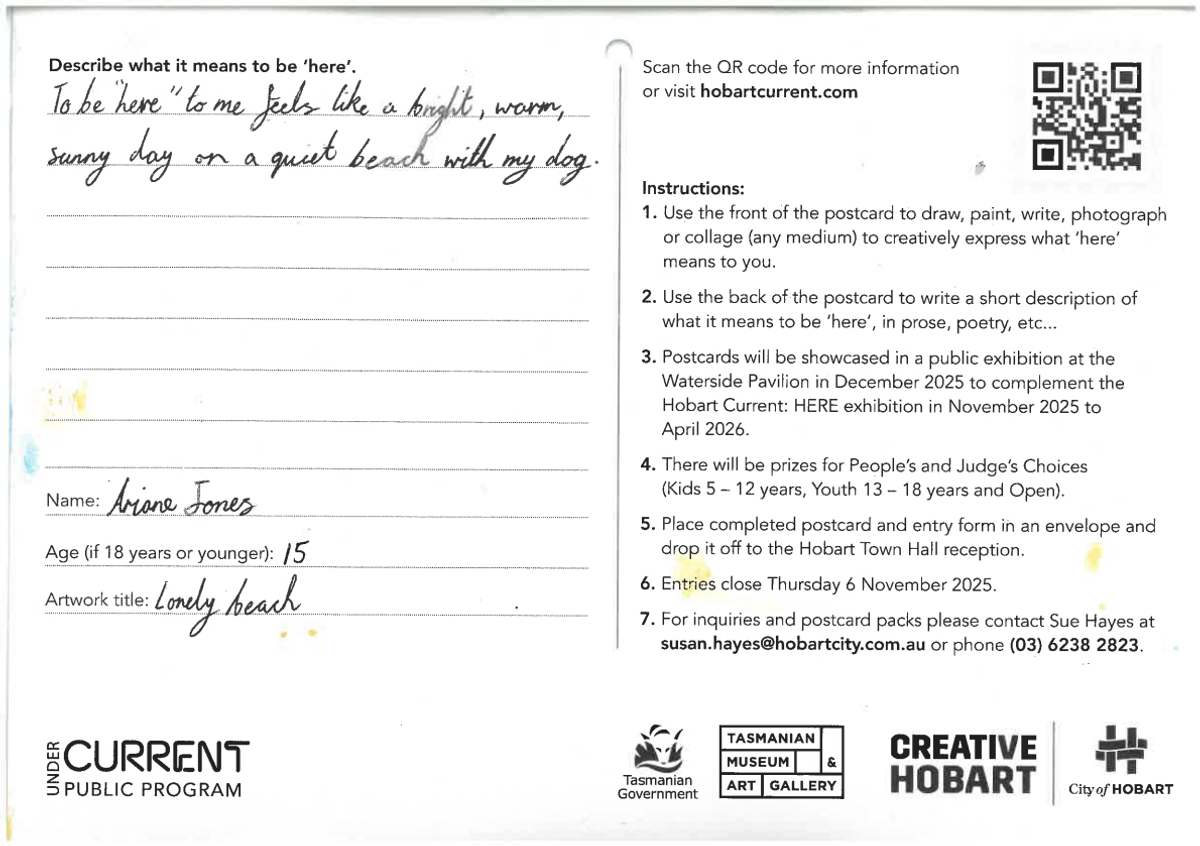 Describe what it means to be ‘here’.
To be "here" to me feels like a bright, warm,
sunny day on a quiet beach with my dog.
Name: Ariane Jones
Age (if 18 years or younger): 15
Artwork title: Lonely beach
UNDER
CURRENT
PUBLIC PROGRAM
Scan the QR code for more information
or visit hobartcurrent.com
Instructions:
1. Use the front of the postcard to draw, paint, write, photograph
or collage (any medium) to creatively express what ‘here’
means to you.
2. Use the back of the postcard to write a short description of
what it means to be ‘here’, in prose, poetry, etc...
3. Postcards will be showcased in a public exhibition at the
Waterside Pavilion in December 2025 to complement the
Hobart Current: HERE exhibition in November 2025 to
April 2026.
4. There will be prizes for People’s and Judge’s Choices
(Kids 5 – 12 years, Youth 13 – 18 years and Open).
5. Place completed postcard and entry form in an envelope and
drop it off to the Hobart Town Hall reception.
6. Entries close Thursday 6 November 2025.
7. For inquiries and postcard packs please contact Sue Hayes at
susan.hayes@hobartcity.com.au or phone (03) 6238 2823.
Tasmanian
Government
TASMANIAN
MUSEUM &
ART GALLERY
CREATIVE
HOBART
City of HOBART